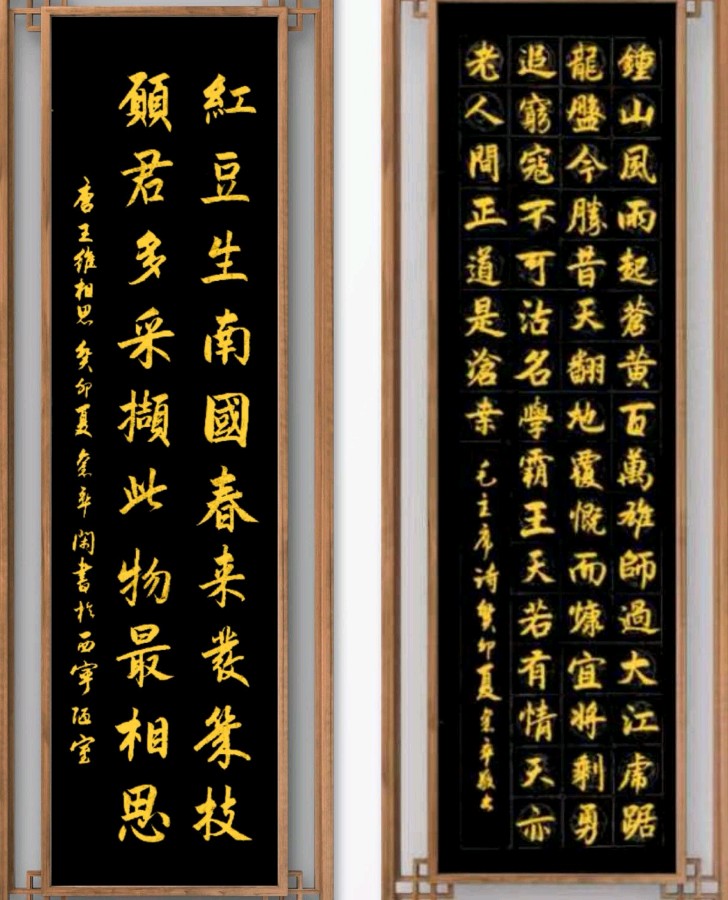 紅豆生南國春来發幾技
願君多采擷此物最相思
唐王維相思 癸卯夏 閑書於西寧陋室
鍾山風雨起蒼黄百萬雄師過大江虎踞
龍盤今勝昔天翻地覆慨而慷宜將剩勇
追窮寇不可沽名學霸王天若有情天亦
老人間正道是滄桒
毛主席诗癸卯夏